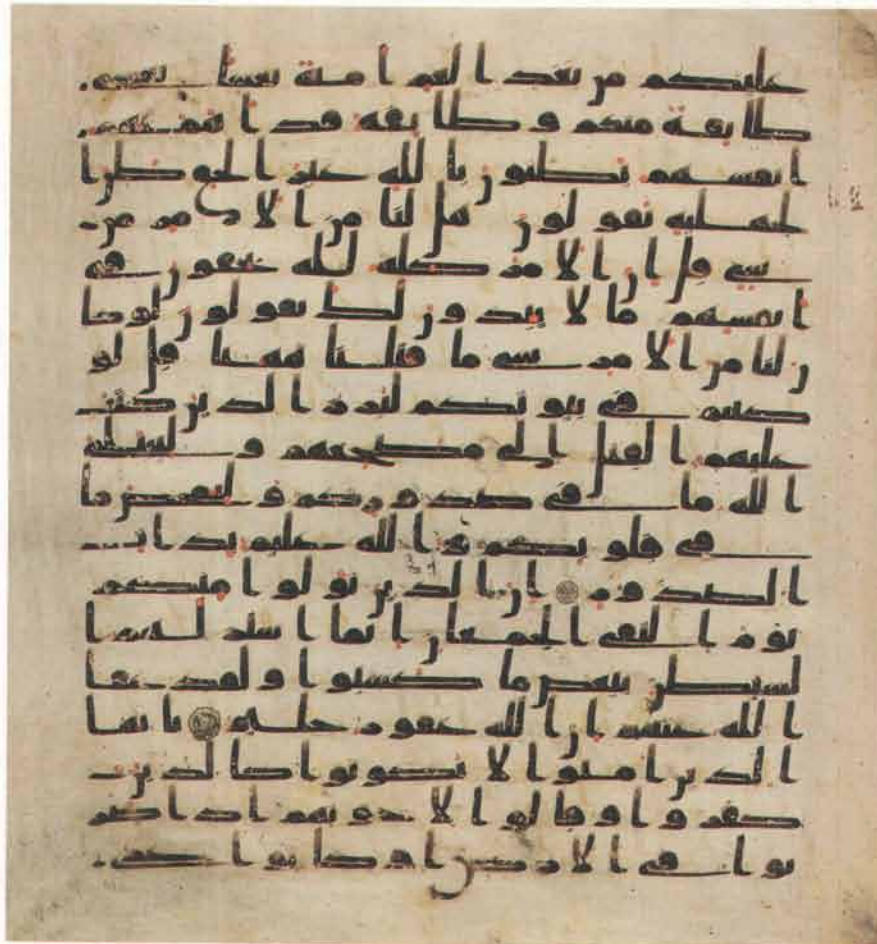 عليكم من بعد الغم امنة نعاسا يغشى
طايفة منكم وطايفة قد اهمتهم
انفسهم يظنون بالله غير الحق ظن ا
لجهلية يقولون هل لنا من الامر من
شي قل ان الامر كله لله يخفون في
انفسهم ما لا يبدون لك يقولون لو كا
ن لنا من الامر شي ما قتلنا ههنا قل لو
كنتم في بيوتكم لبرز الذين كتب
عليهم القتل الى مضجعهم وليبتلي
الله ما في صدوركم وليمحص ما
في قلوبكم والله عليم بذات
الصدور ان الذين تولوا منكم
يوم التقى الجمعن انما استزلهم ا
لشيطن ببعض ما كسبوا ولقد عفا
الله عنهم ان الله غفور حليم يايها
الذين امنوا لا تكونوا كالذين
كفروا وقالوا لاخونهم اذا ضر
بوا في الارض او كانوا غزى